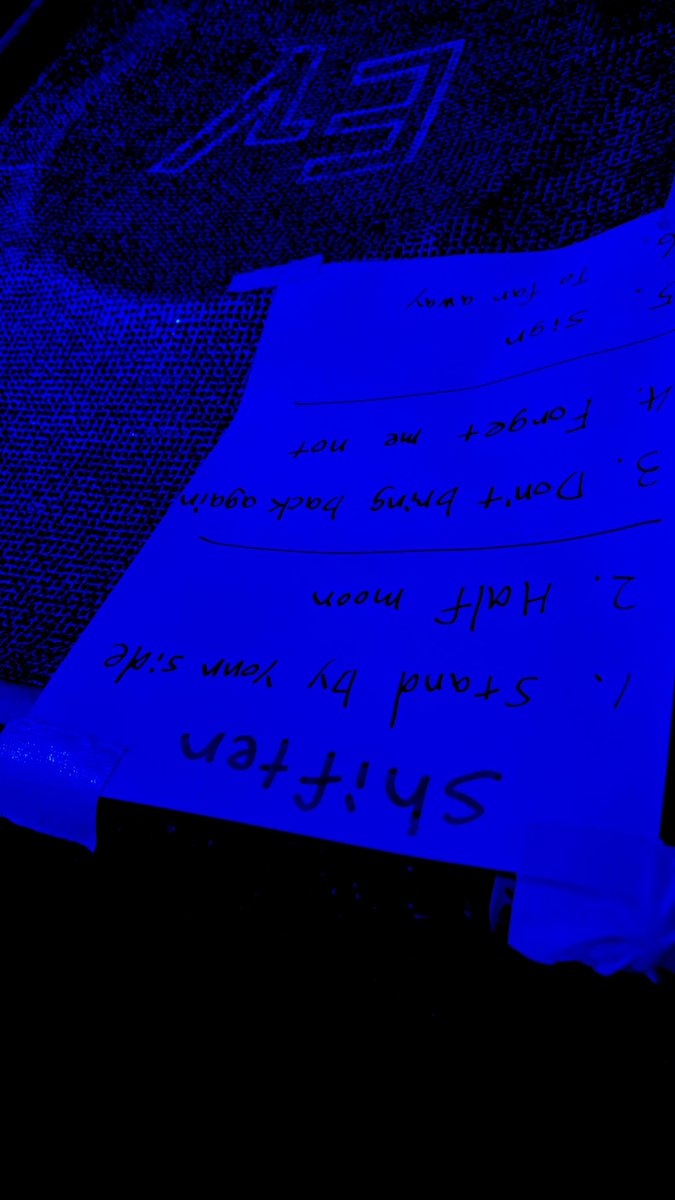 Shifter
1. Stand by your side
2. Half moon
3. Don't bring back again
4. Forget me not
5. Sign
6. To far away
EV